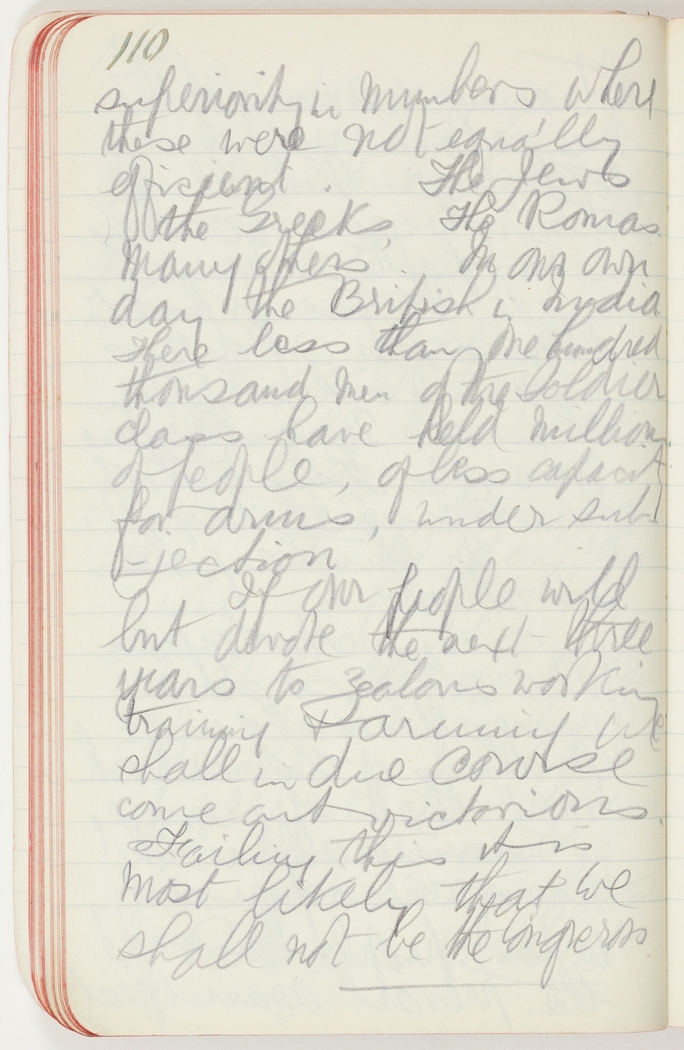 110
superiority in numbers where
these were not equally
efficient. The Jews
the Greeks, The Romas
many others. In our own
day the British in India
There less than one hundred
thousand men of the Soldier
class have held million
of people, of less capacit
for arms, under sub
-jection
If our people will
but devote the next three
years to zealous working
training & arming we
shall in due course
come out victorious.
Failing this it is
most likely that we
shall not be the conquerors.